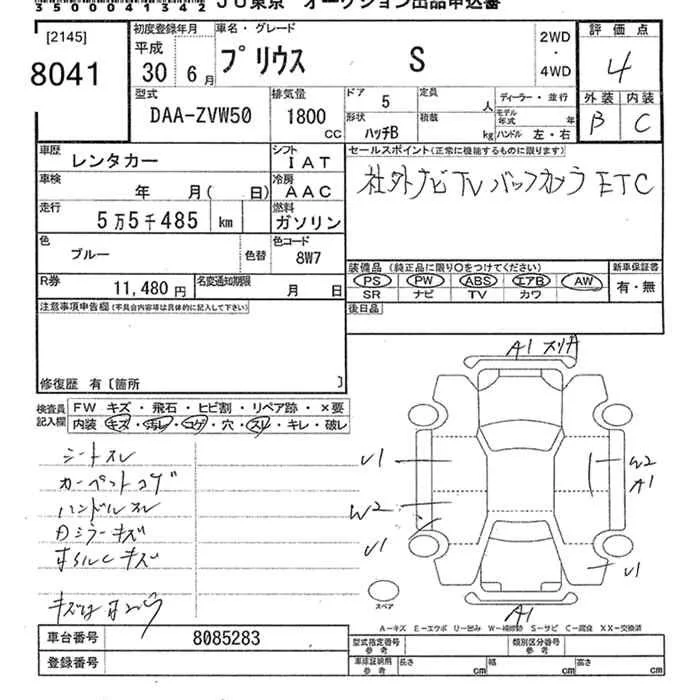 3500041342
JU東京 オークション出品申込書
[2145]
8041
初度登録年月
平成
30 6月
車名・グレード
プリウス S
2WD
・
4WD
評価点
4
外装 内装
B C
型式
DAA-ZVW50
排気量
1800
CC
ドア 5
定員 人
形状
ハッチB
積載 kg
ディーラー・並行
モデル年式 年
ハンドル 左・右
車歴
レンタカー
シフト
IAT
車検 年 月( 日)
冷房
AAC
走行
5万5千485 km
燃料
ガソリン
色
ブルー
色替
色コード
8W7
R券
11,480円
名変通知期限
月 日
セールスポイント(正常に機能するものに限ります)
社外ナビTV バックカメラ ETC
装備品(純正品に限り○をつけてください)
PS PW ABS エアB AW
SR ナビ TV カワ
新車保証書
有・無
後日品
注意事項申告欄(不具合内容等は具体的に記入して下さい)
修復歴 有〔箇所 〕
検査員
記入欄
FW キズ・飛石・ヒビ割・リペア跡・×要
内装 キズ・汚レ・コゲ・穴・スレ・キレ・破レ
シートスレ
カーペットコゲ
ハンドルスレ
Dミラーキズ
キズ
A1 メリ
U1
W2
U1
W2
A1
U1
A1
スペア
A-キズ E-エクボ U-凹み W-補修跡 S-サビ C-腐食 XX-交換済
車台番号 8085283
登録番号
型式指定番号
参考
類別区分番号
参考
車庫証明用
参考
長さ cm 幅 cm 高さ cm